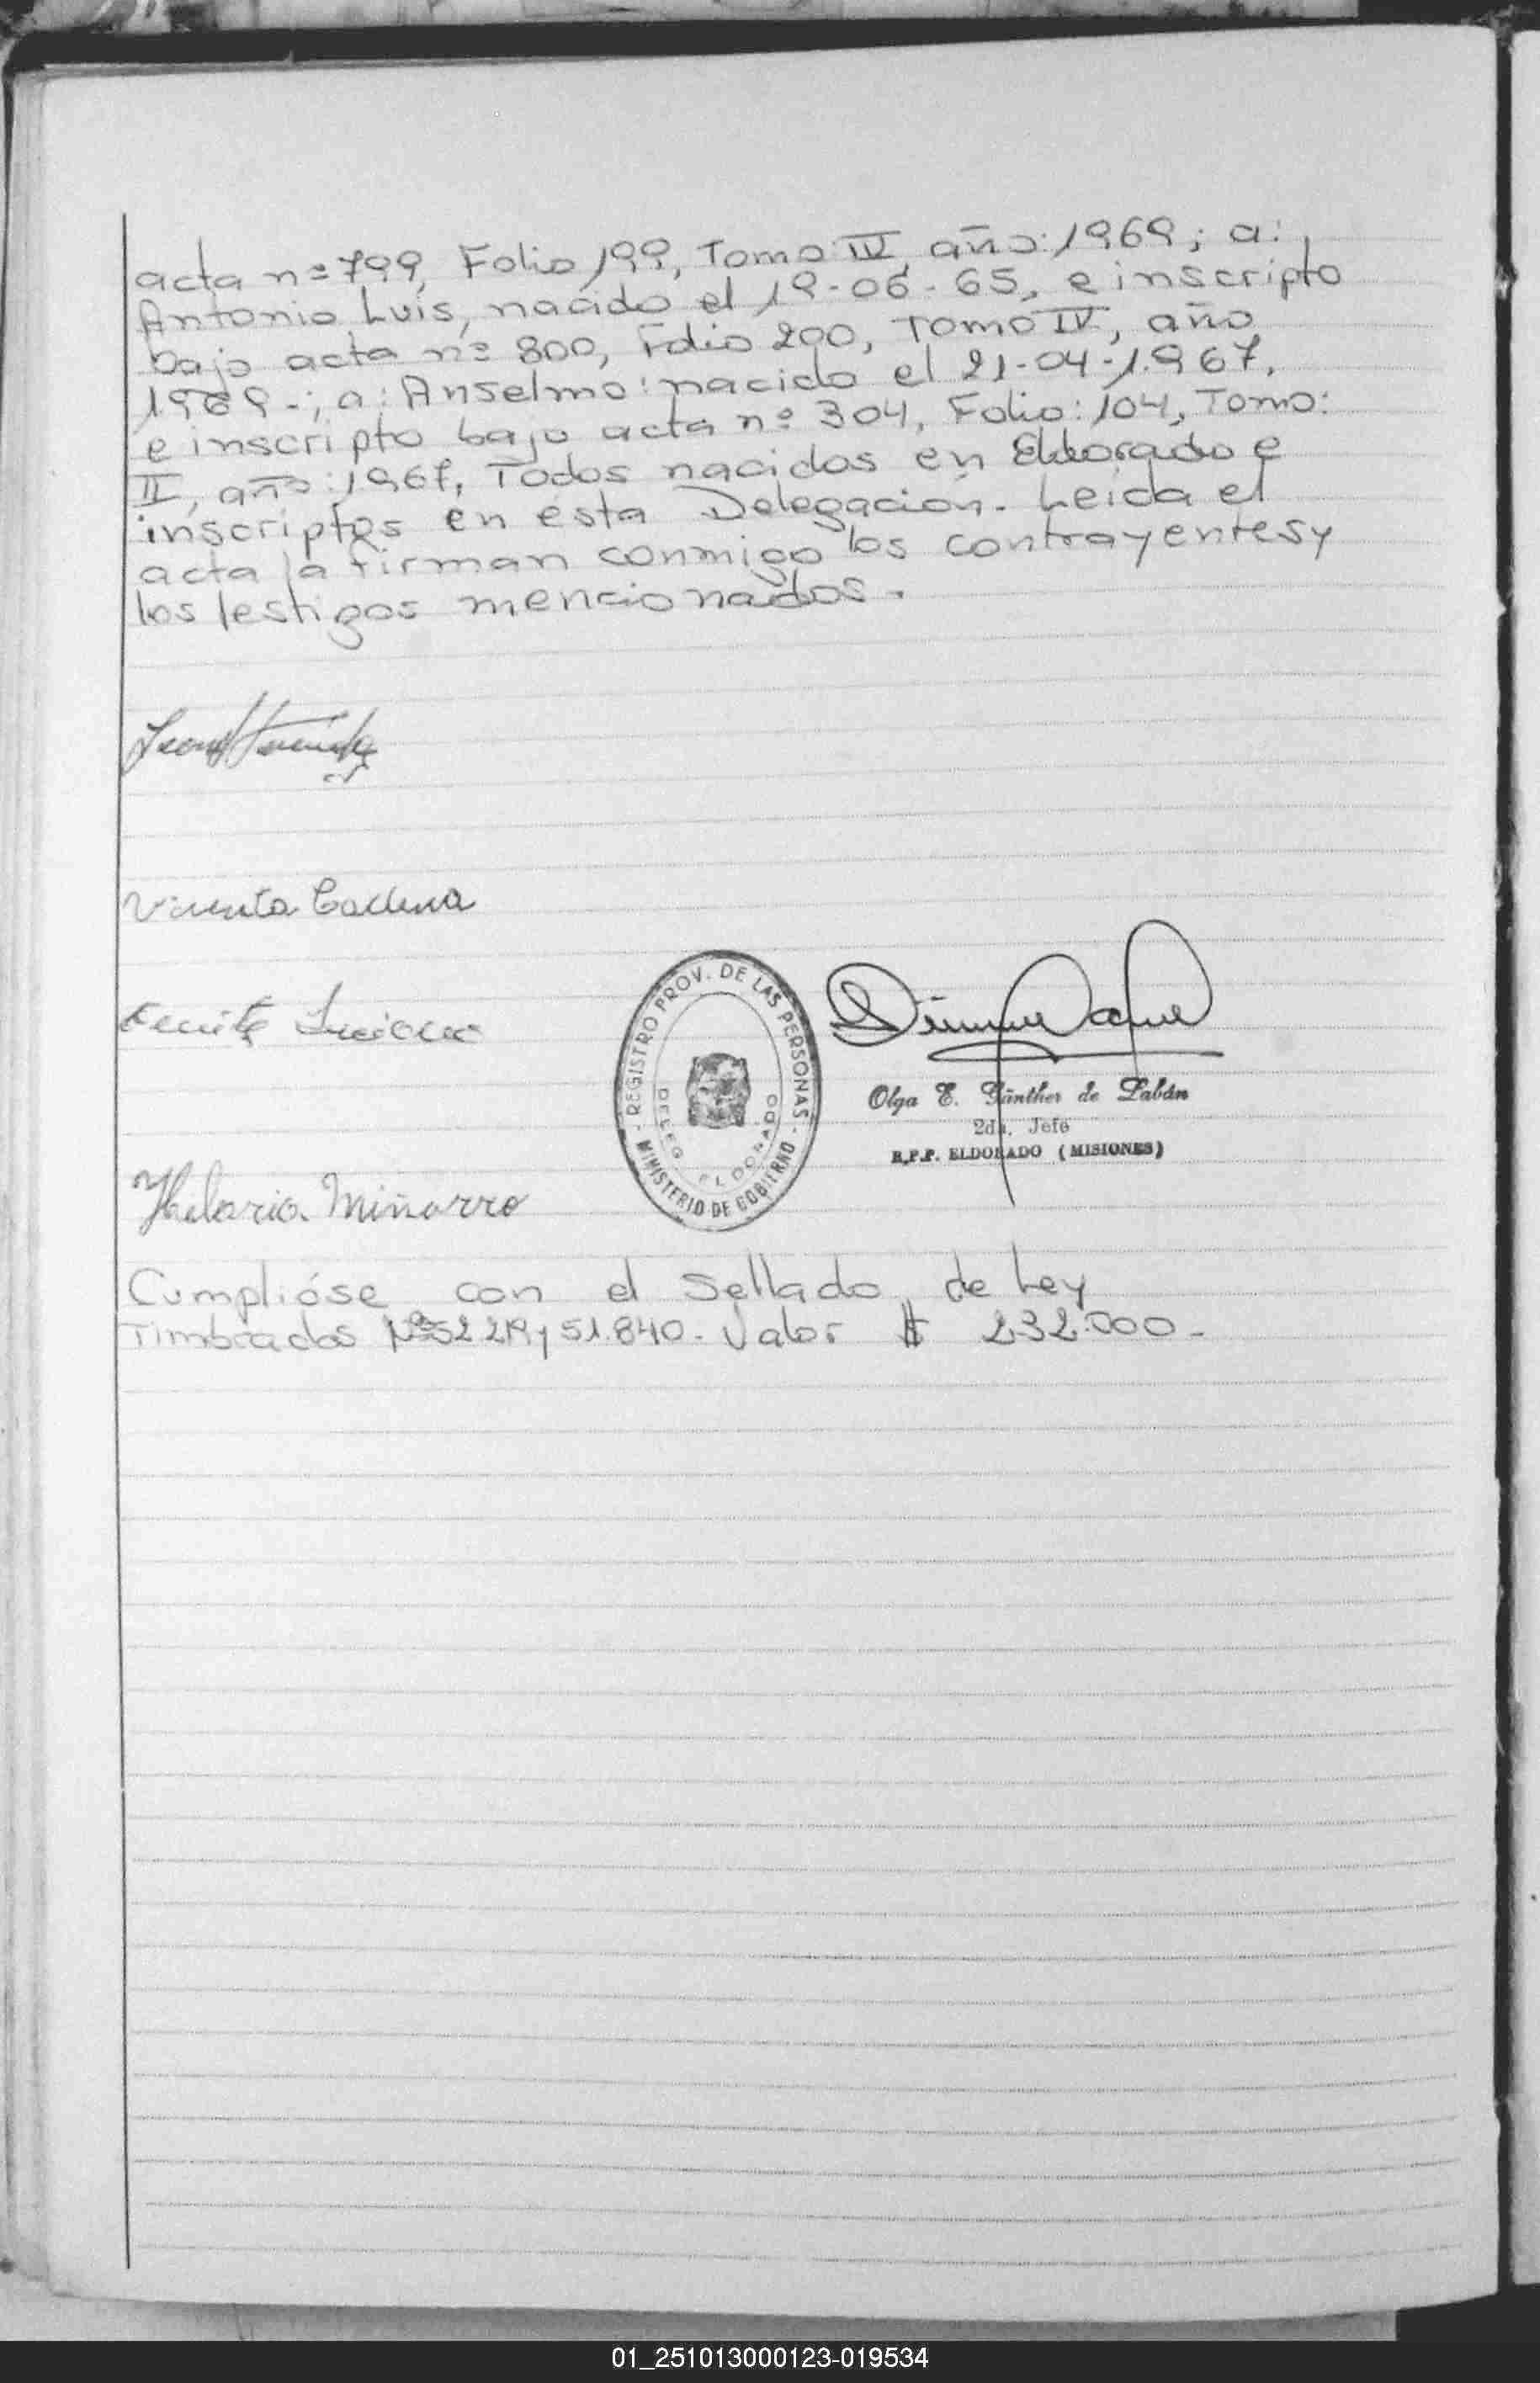 acta nº 799, Folio 199, Tomo: IV, año: 1969; a:
Antonio Luis, nacido el 19-06-65, e inscripto
bajo acta nº 800, Folio 200, Tomo IV, año
1969-; a: Anselmo: nacido el 21-04-1.967,
e inscripto bajo acta nº 304, Folio: 104, Tomo:
II, año: 1967, Todos nacidos en Eldorado e
inscriptos en esta Delegación. Leida el
acta la firman conmigo los contrayentes y
los testigos mencionados.
Hilario Miñarro
REGISTRO PROV. DE LAS PERSONAS - MINISTERIO DE GOBIERNO -
DELEG. ELDORADO
Olga E. Günther de Labán
2da. Jefe
R.P.P. ELDORADO (MISIONES)
Cumplióse con el Sellado de Ley
Timbrados y 51.840. Valor $ 232.000-
01_251013000123-019534